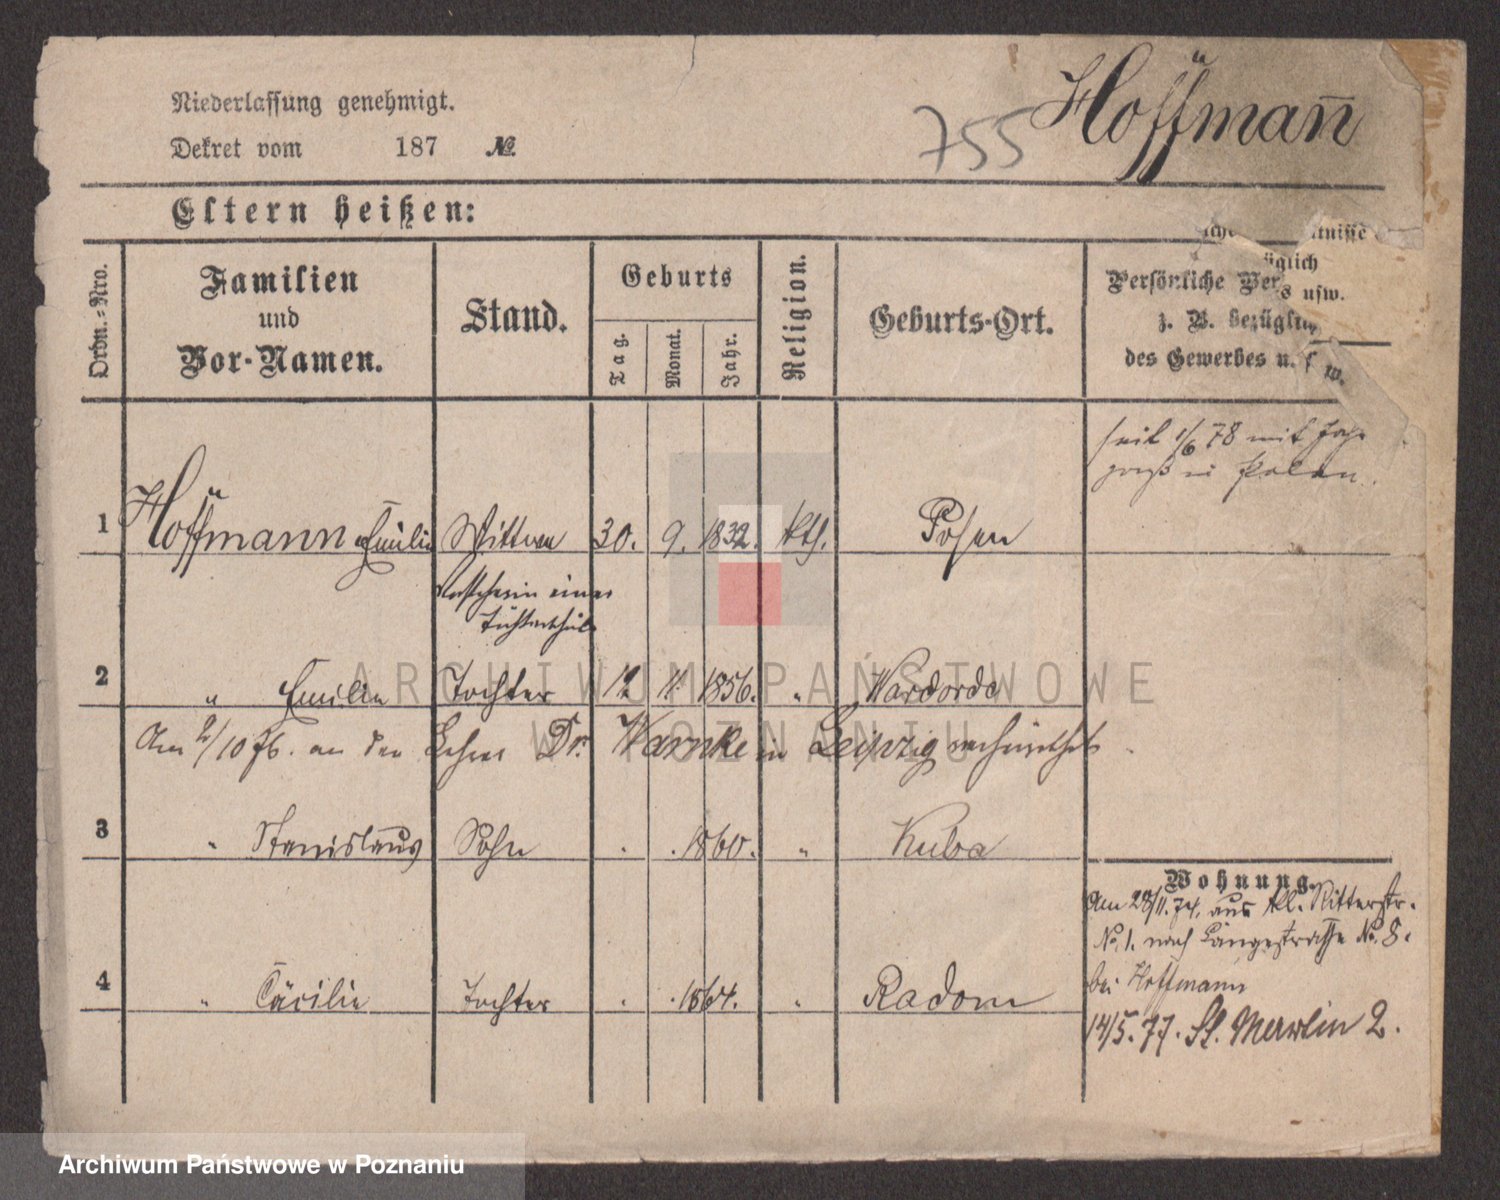 Niederlassung genehmigt.
755 Hoffmann
Dekret vom 187 №.
Eltern heißen:
Ordn.-Nro.
Familien und Vor-Namen.
Stand.
Geburts
Tag.
Monat.
Jahr.
Religion.
Geburts-Ort.
tnisse
üglich
Persönliche Ver
s usw.
z. B. bezüglich
des Gewerbes u. s w.
seit 1/6 78 mit
in Polen.
1 Hoffmann Emilie Wittwe 30. 9. 1832. kth. Posen
Vorsteherin einer
Töchterschule
2 " Emilie Tochter 12 11. 1856. "
Am 2/10 76. an den Lehrer Dr. Warnke in Leipzig verheirathet.
3 " Stanislaus Sohn . . 1860. " Kuba
4 " Cäcilie Tochter . . 1864. " Radom
Wohnung.
Am 28/11. 74. aus kl. Ritterstr.
No. 1. nach Langestrasse No. 8.
bei Hoffmann
14/5. 77. St. Martin 2.
ARCHIWUM PAŃSTWOWE
W POZNANIU
Archiwum Państwowe w Poznaniu